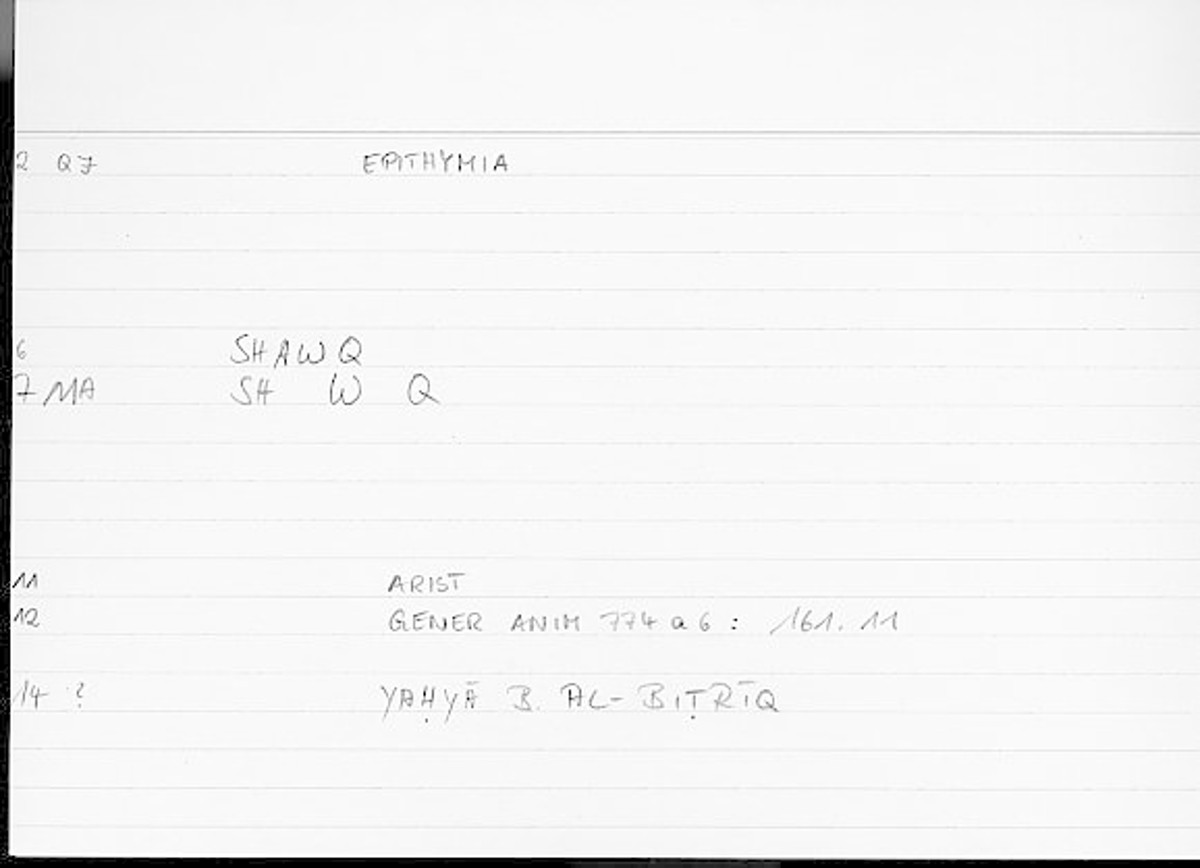 2 Q7 EPITHYMIA
6 SHAWQ
7 MA SH W Q
11 ARIST
12 GENER ANIM 774 a 6 : 161. 11
14 ? YAḤYĀ B. AL-BIṬRĪQ